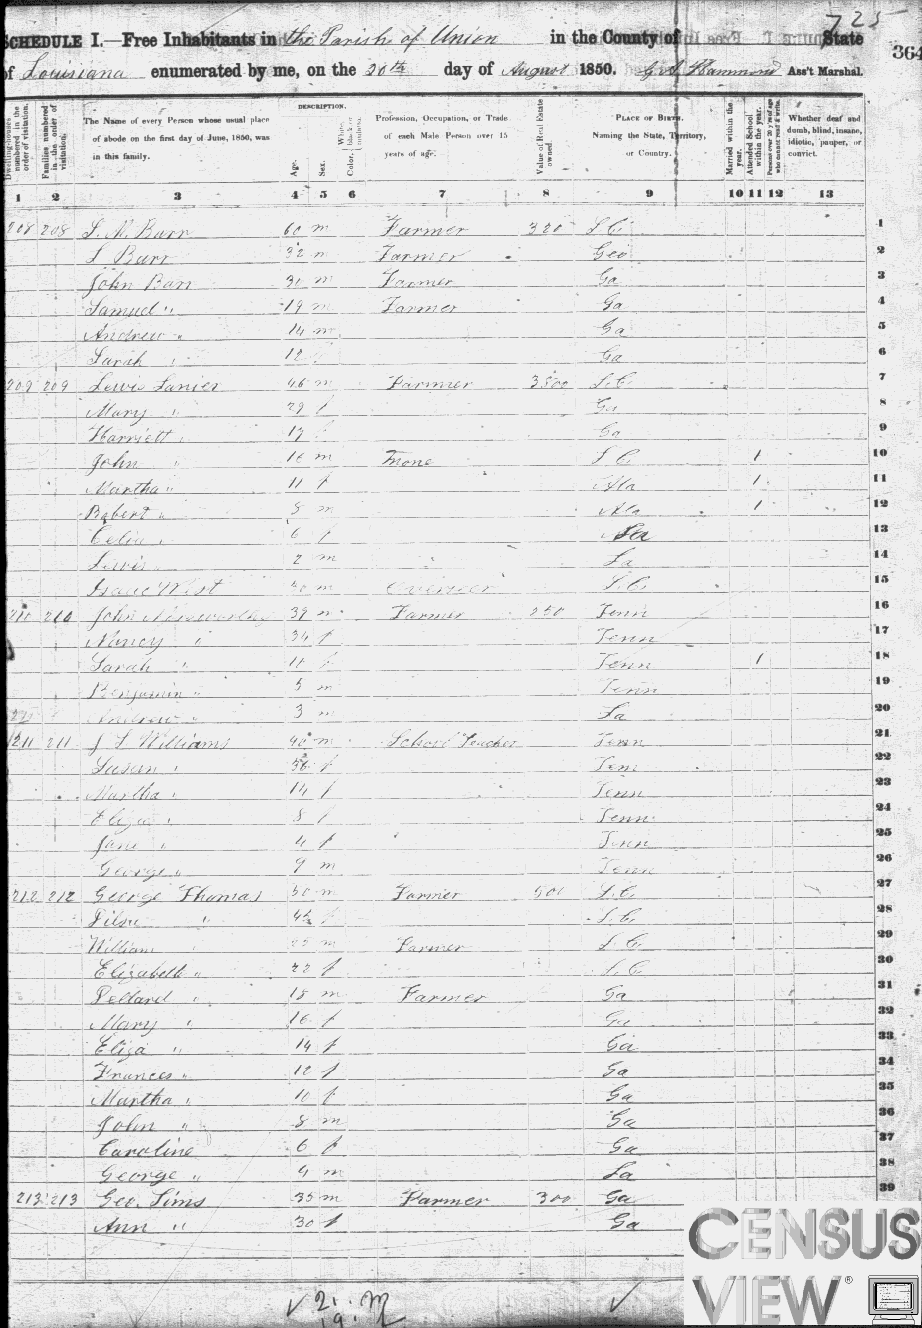 725
SCHEDULE I.—Free Inhabitants in the Parish of Union in the County of State
364
of Louisiana enumerated by me, on the 20th day of August 1850. Hammond Ass't Marshal.
Dwelling-houses numbered in the order of visitation.
Families numbered in the order of visitation.
The Name of every Person whose usual place of abode on the first day of June, 1850, was in this family.
DESCRIPTION.
Age.
Sex.
Color,
Profession, Occupation, or Trade of each Male Person over 15 years of age.
Value of Real Estate owned.
PLACE OF BIRTH. Naming the State, Territory, or Country.
Married within the year.
Attended School within the year.
Persons over 20 y'rs of age who cannot read & write.
Whether deaf and dumb, blind, insane, idiotic, pauper, or convict.
1 2 3 4 5 6 7 8 9 10 11 12 13
208 208 Barr 60 m Farmer 320 S.C. 1
S Barr 32 m Farmer Geo 2
John Barr 30 m Farmer Ga 3
Samuel " 19 m Farmer Ga 4
Andrew " 14 m Ga 5
Sarah " 12 Ga 6
209 209 Lewis Lanier 46 m Farmer 3500 S.C. 7
Mary " 29 f Ga 8
Harriett " 17 f Ga 9
John " 16 m None S C 1 10
Martha " 11 f Ala 1 11
Robert " 8 m Ala 1 12
Celia " 6 f La 13
Lewis " 2 m La 14
Isaac West 30 m Overseer S.C. 15
210 210 John 39 m Farmer 250 Tenn 16
Nancy " 34 f Tenn 17
Sarah " 11 f Tenn 1 18
Benjamin " 5 m Tenn 19
Andrew " 3 m La 20
211 211 J S Williams 40 m School Teacher Tenn 21
Susan " 36 f Tenn 22
Martha " 14 f Tenn 23
Eliza " 8 f Tenn 24
Jane " 4 f Tenn 25
George " 9 m Tenn 26
212 212 George Thomas 50 m Farmer 500 S.C. 27
" 42 f S.C. 28
William " 22 m Farmer S C 29
Elizabeth " 22 f S.C. 30
Pellard " 18 m Farmer Ga 31
Mary " 16 f Ga 32
Eliza " 14 f Ga 33
Frances " 12 f Ga 34
Martha " 10 f Ga 35
John " 8 m Ga 36
Caroline 6 f Ga 37
George " 4 m La 38
213 213 Geo. Sims 35 m Farmer 300 Ga 39
Ann " 30 f Ga
21. M
19.
CENSUS
VIEW®